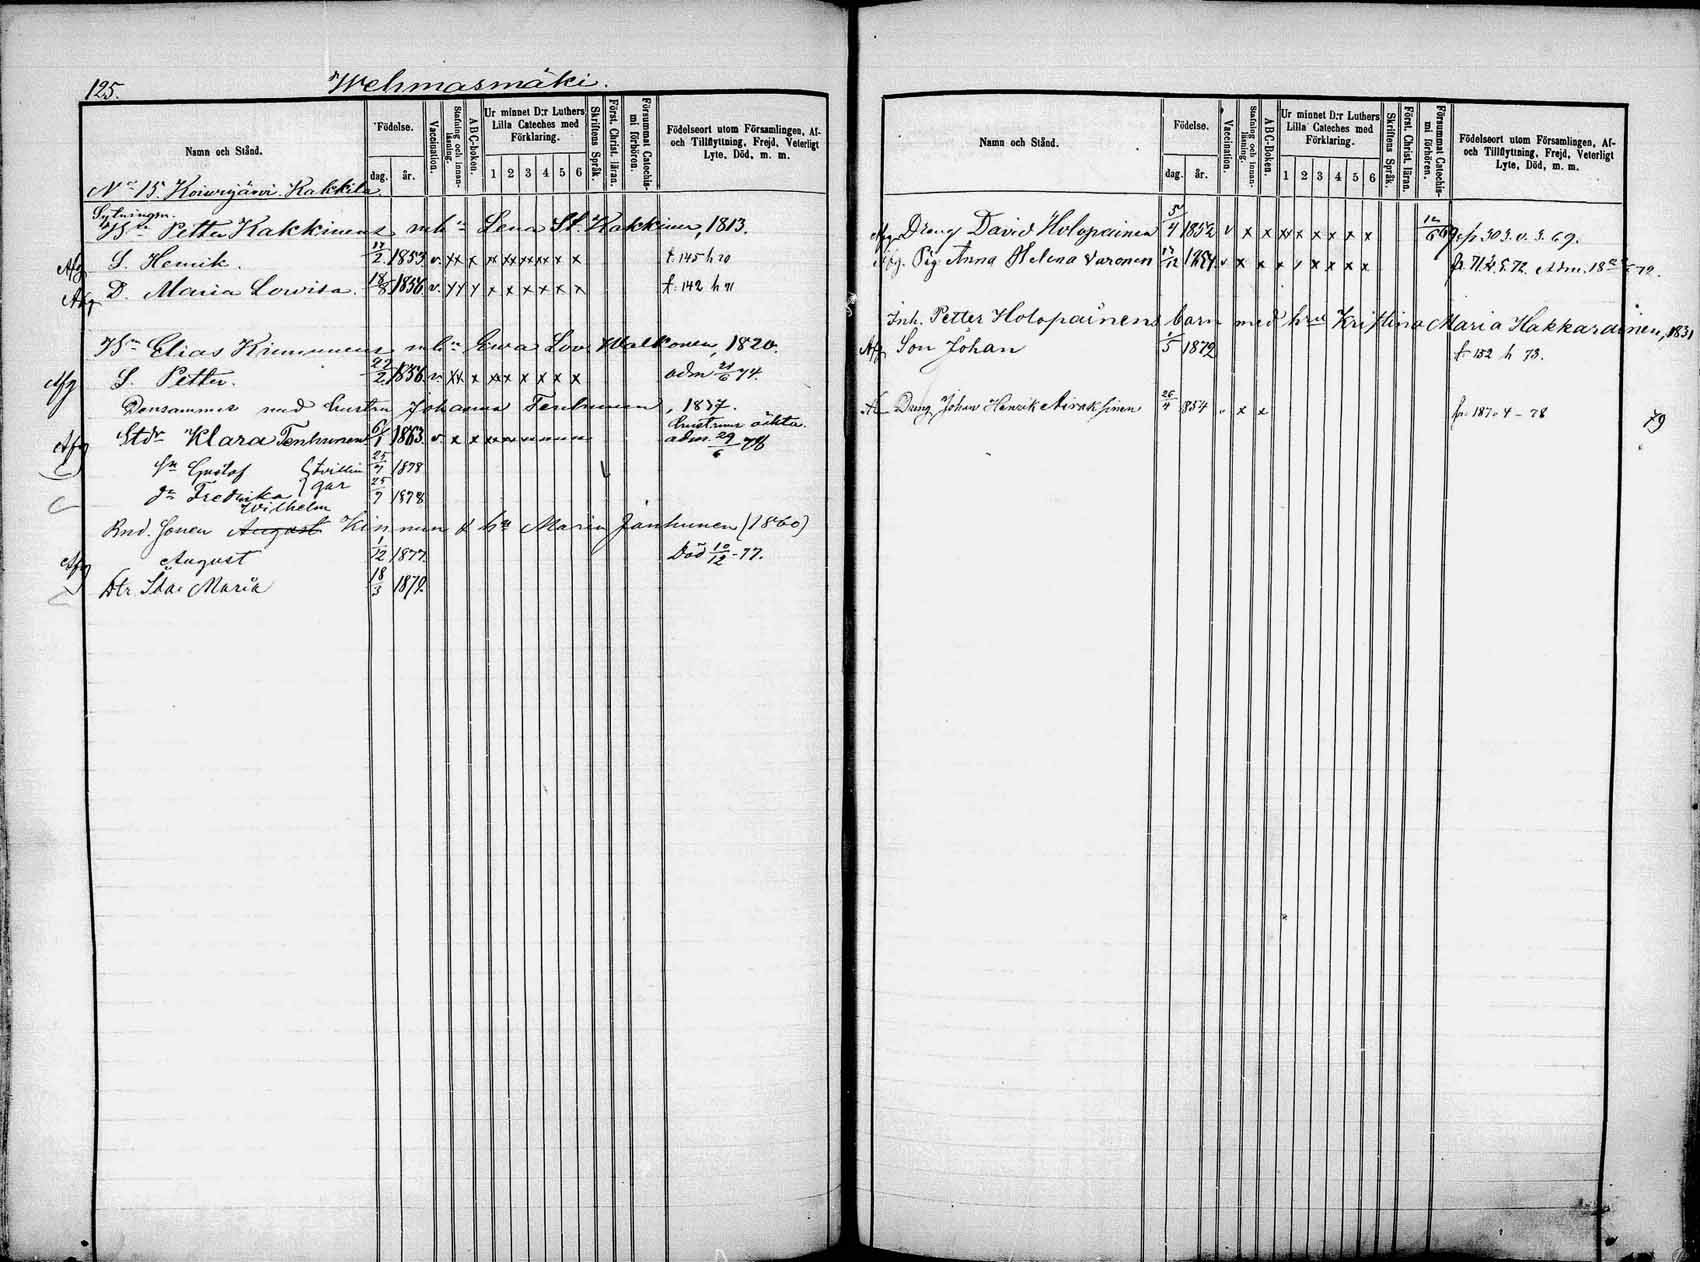 125. Wehmasmäki.
Namn och Stånd.
Födelse.
dag. år.
Vaccination.
Stafning och innanläsning.
ABC-boken.
Ur minnet D:r Luthers Lilla Cateches med Förklaring.
1 2 3 4 5 6
Skriftens Språk.
Först. Christ. läran.
Försummat Catechismi förhören.
Födelseort utom Församlingen, Af- och Tillflyttning, Frejd, Veterligt Lyte, Död, m. m.
No 15. Koiwujärwi. Kakkila
Sytningsm.
Petter Kakkinens m hu Lena St. Kakkinen, 1813.
Afg S. Henrik. 17/2 1853 v. xx x xx xx xx x x f. 145 h 70
Afg D. Maria Lowisa. 18/8 1856 v. x x x x x x x x x f. 142 h 71
Elias Kinnunens m hu Ewa Lov. Walkonen, 1820.
Afg S. Petter. 22/2 1856. v. xx x xx x x x x x adm 21/6 74.
Densammes med hustru Johanna Tenhunen, 1837.
hustruns oäkta.
Afg Std Klara Tenhunen 6/1 1863. v. x x adm. 29/6 78
Sn Gustof } tvillin 25/7 1878
Dr Fredrika } gar 25/7 1878
Wilhelm
Bnd. Sonen August Kinnunen & hu Maria Janhunen (1860)
Afg August 1/12 1877. Död 10/12-77.
Dtr Ida Maria 18/3 1879.
Namn och Stånd.
Födelse.
dag. år.
Vaccination.
Stafning och innanläsning.
ABC-boken.
Ur minnet D:r Luthers Lilla Cateches med Förklaring.
1 2 3 4 5 6
Skriftens Språk.
Först. Christ. läran.
Försummat Catechismi förhören.
Födelseort utom Församlingen, Af- och Tillflyttning, Frejd, Veterligt Lyte, Död, m. m.
Afg Dreng David Holopainen 5/4 1852 v x x xx x x x x x 12/6 69 303. v. 3. 69.
Afg. Pig. Anna Helena Varonen 17/12 1854 v x x x x x x x x fr. 72 Adm. 18 72.
Inh. Petter Holopainens barn med hru Kristina Maria Hakkarainen, 1831
Afg Son Johan 1/5 1872 f 152 h 73.
Dreng Johan Henrik Airaksinen 26/4 854 v x x fr. 187 4-78
79